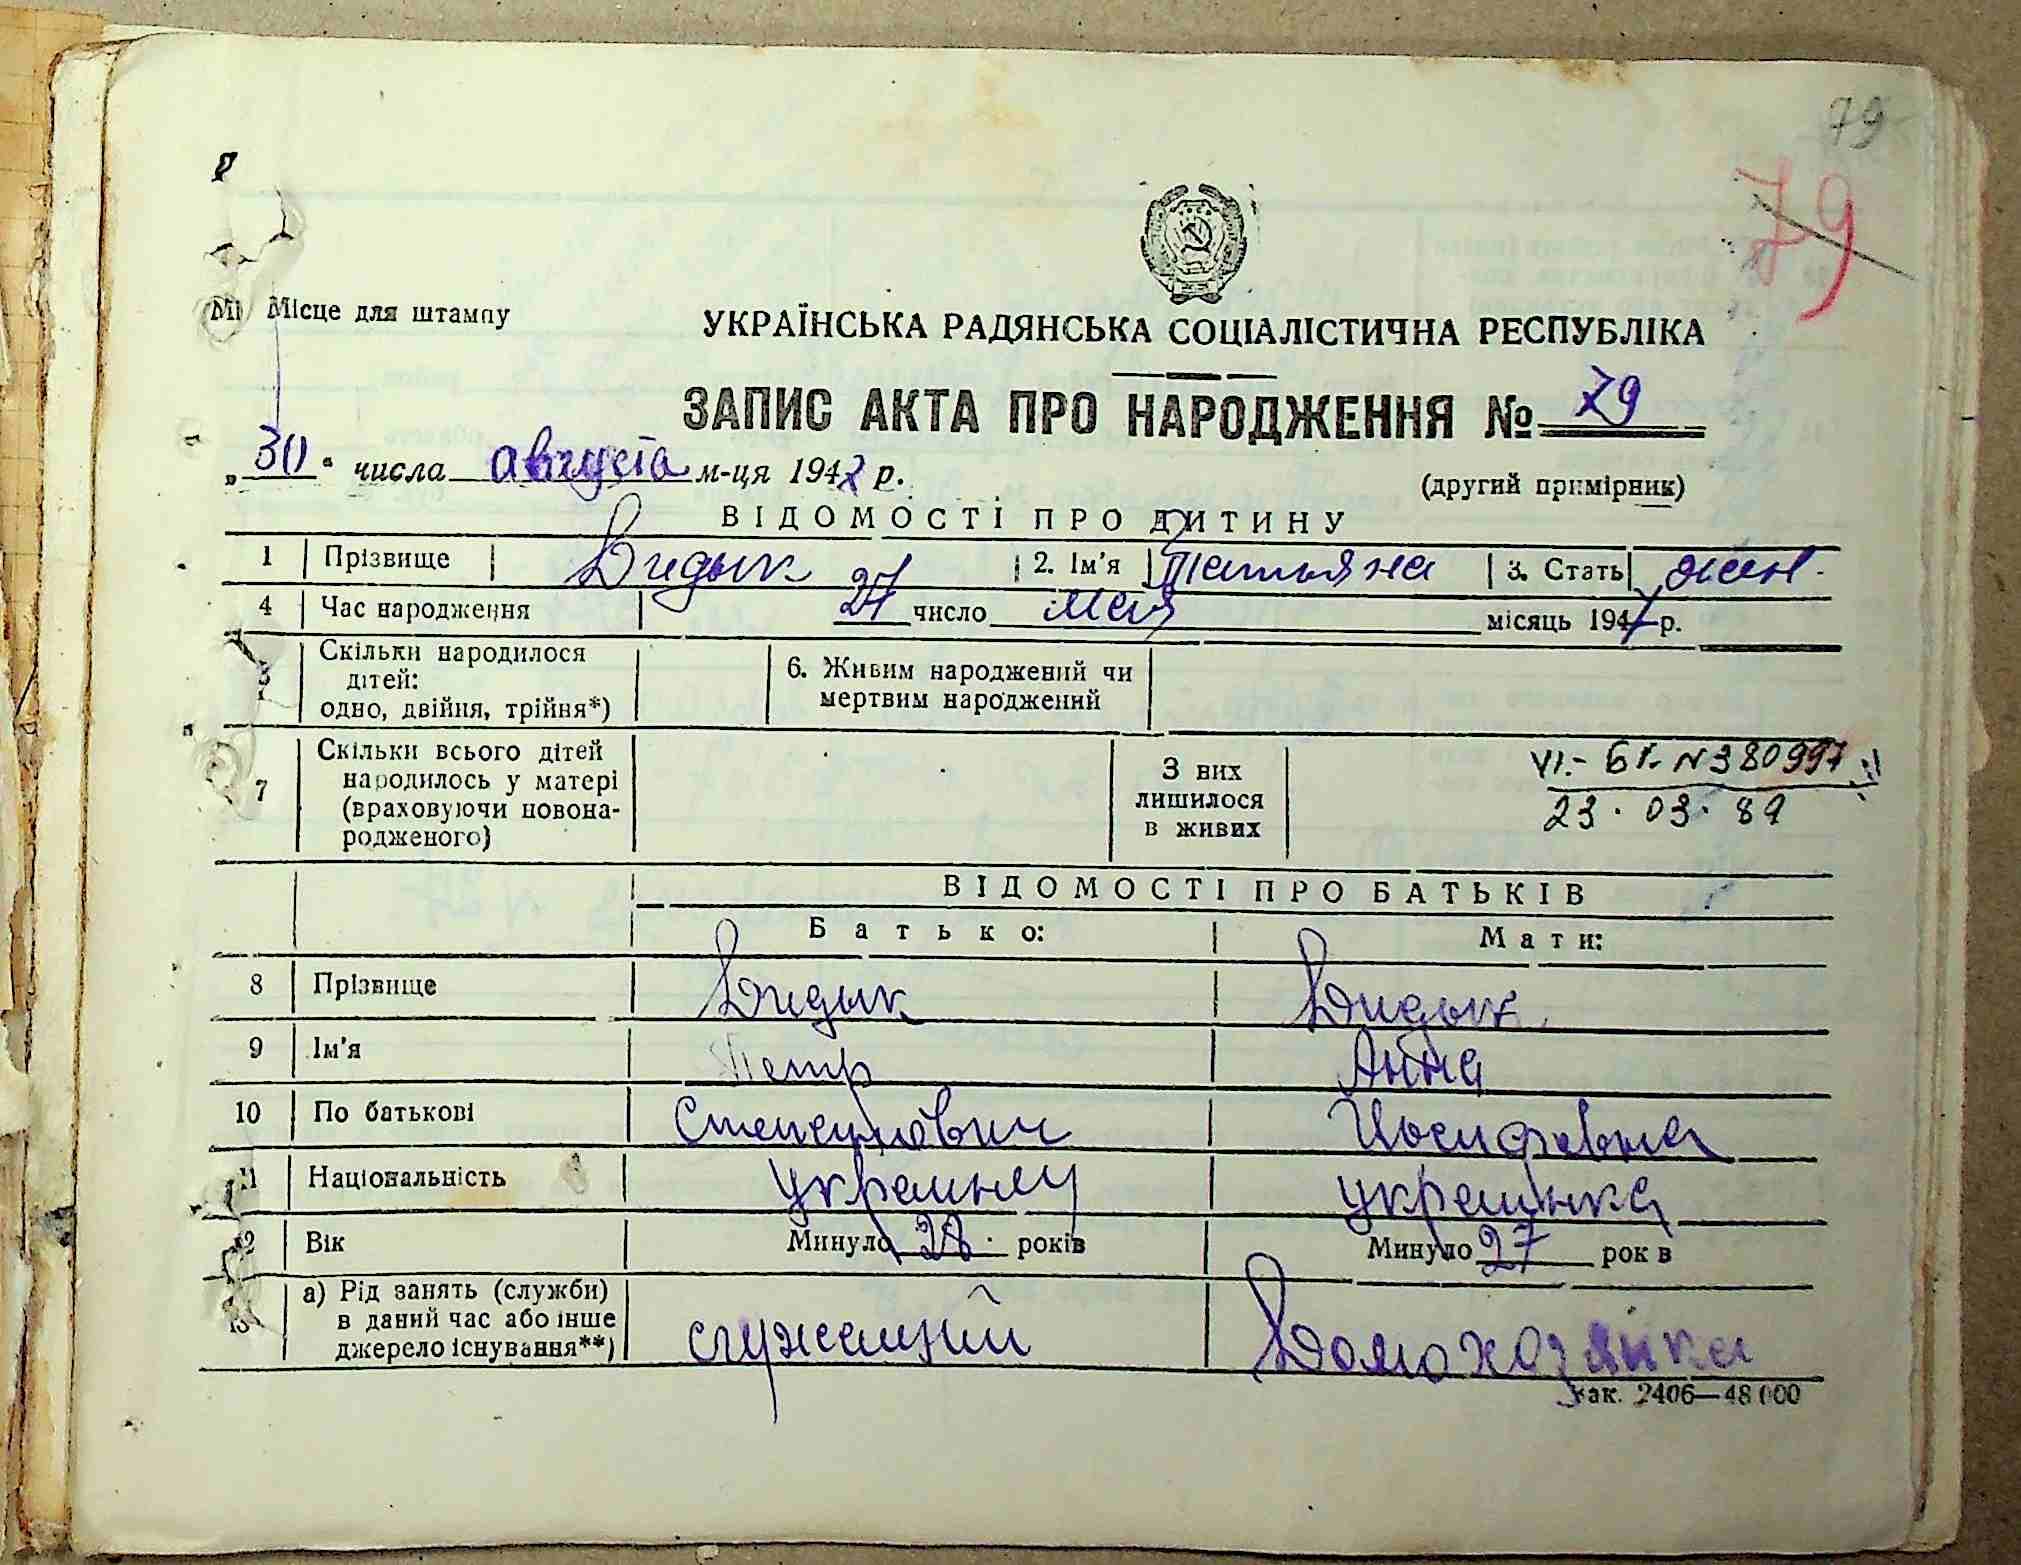 79
79
Місце для штампу
УКРАЇНСЬКА РАДЯНСЬКА СОЦІАЛІСТИЧНА РЕСПУБЛІКА
ЗАПИС АКТА ПРО НАРОДЖЕННЯ № 79
„30“ числа августа м-ця 1947 р.
(другий примірник)
ВІДОМОСТІ ПРО ДИТИНУ
1 Прізвище Дидык 2. Ім'я Татьяна 3. Стать жен.
4 Час народження 27 число мая місяць 1947 р.
5 Скільки народилося дітей: одно, двійня, трійня*) 6. Живим народжений чи мертвим народжений
7 Скільки всього дітей народилось у матері (враховуючи новонародженого) З них лишилося в живих
VI.- БК N 380997
23.03.89
ВІДОМОСТІ ПРО БАТЬКІВ
Батько: Мати:
8 Прізвище Дидык Дидык
9 Ім'я Петр Анна
10 По батькові Степанович Иосифовна
11 Національність украинец украинка
12 Вік Минуло 28 років Минуло 27 рок в
13 а) Рід занять (служби) в даний час або інше джерело існування**) служащий Домохозяйка
Зак. 2406—48 000